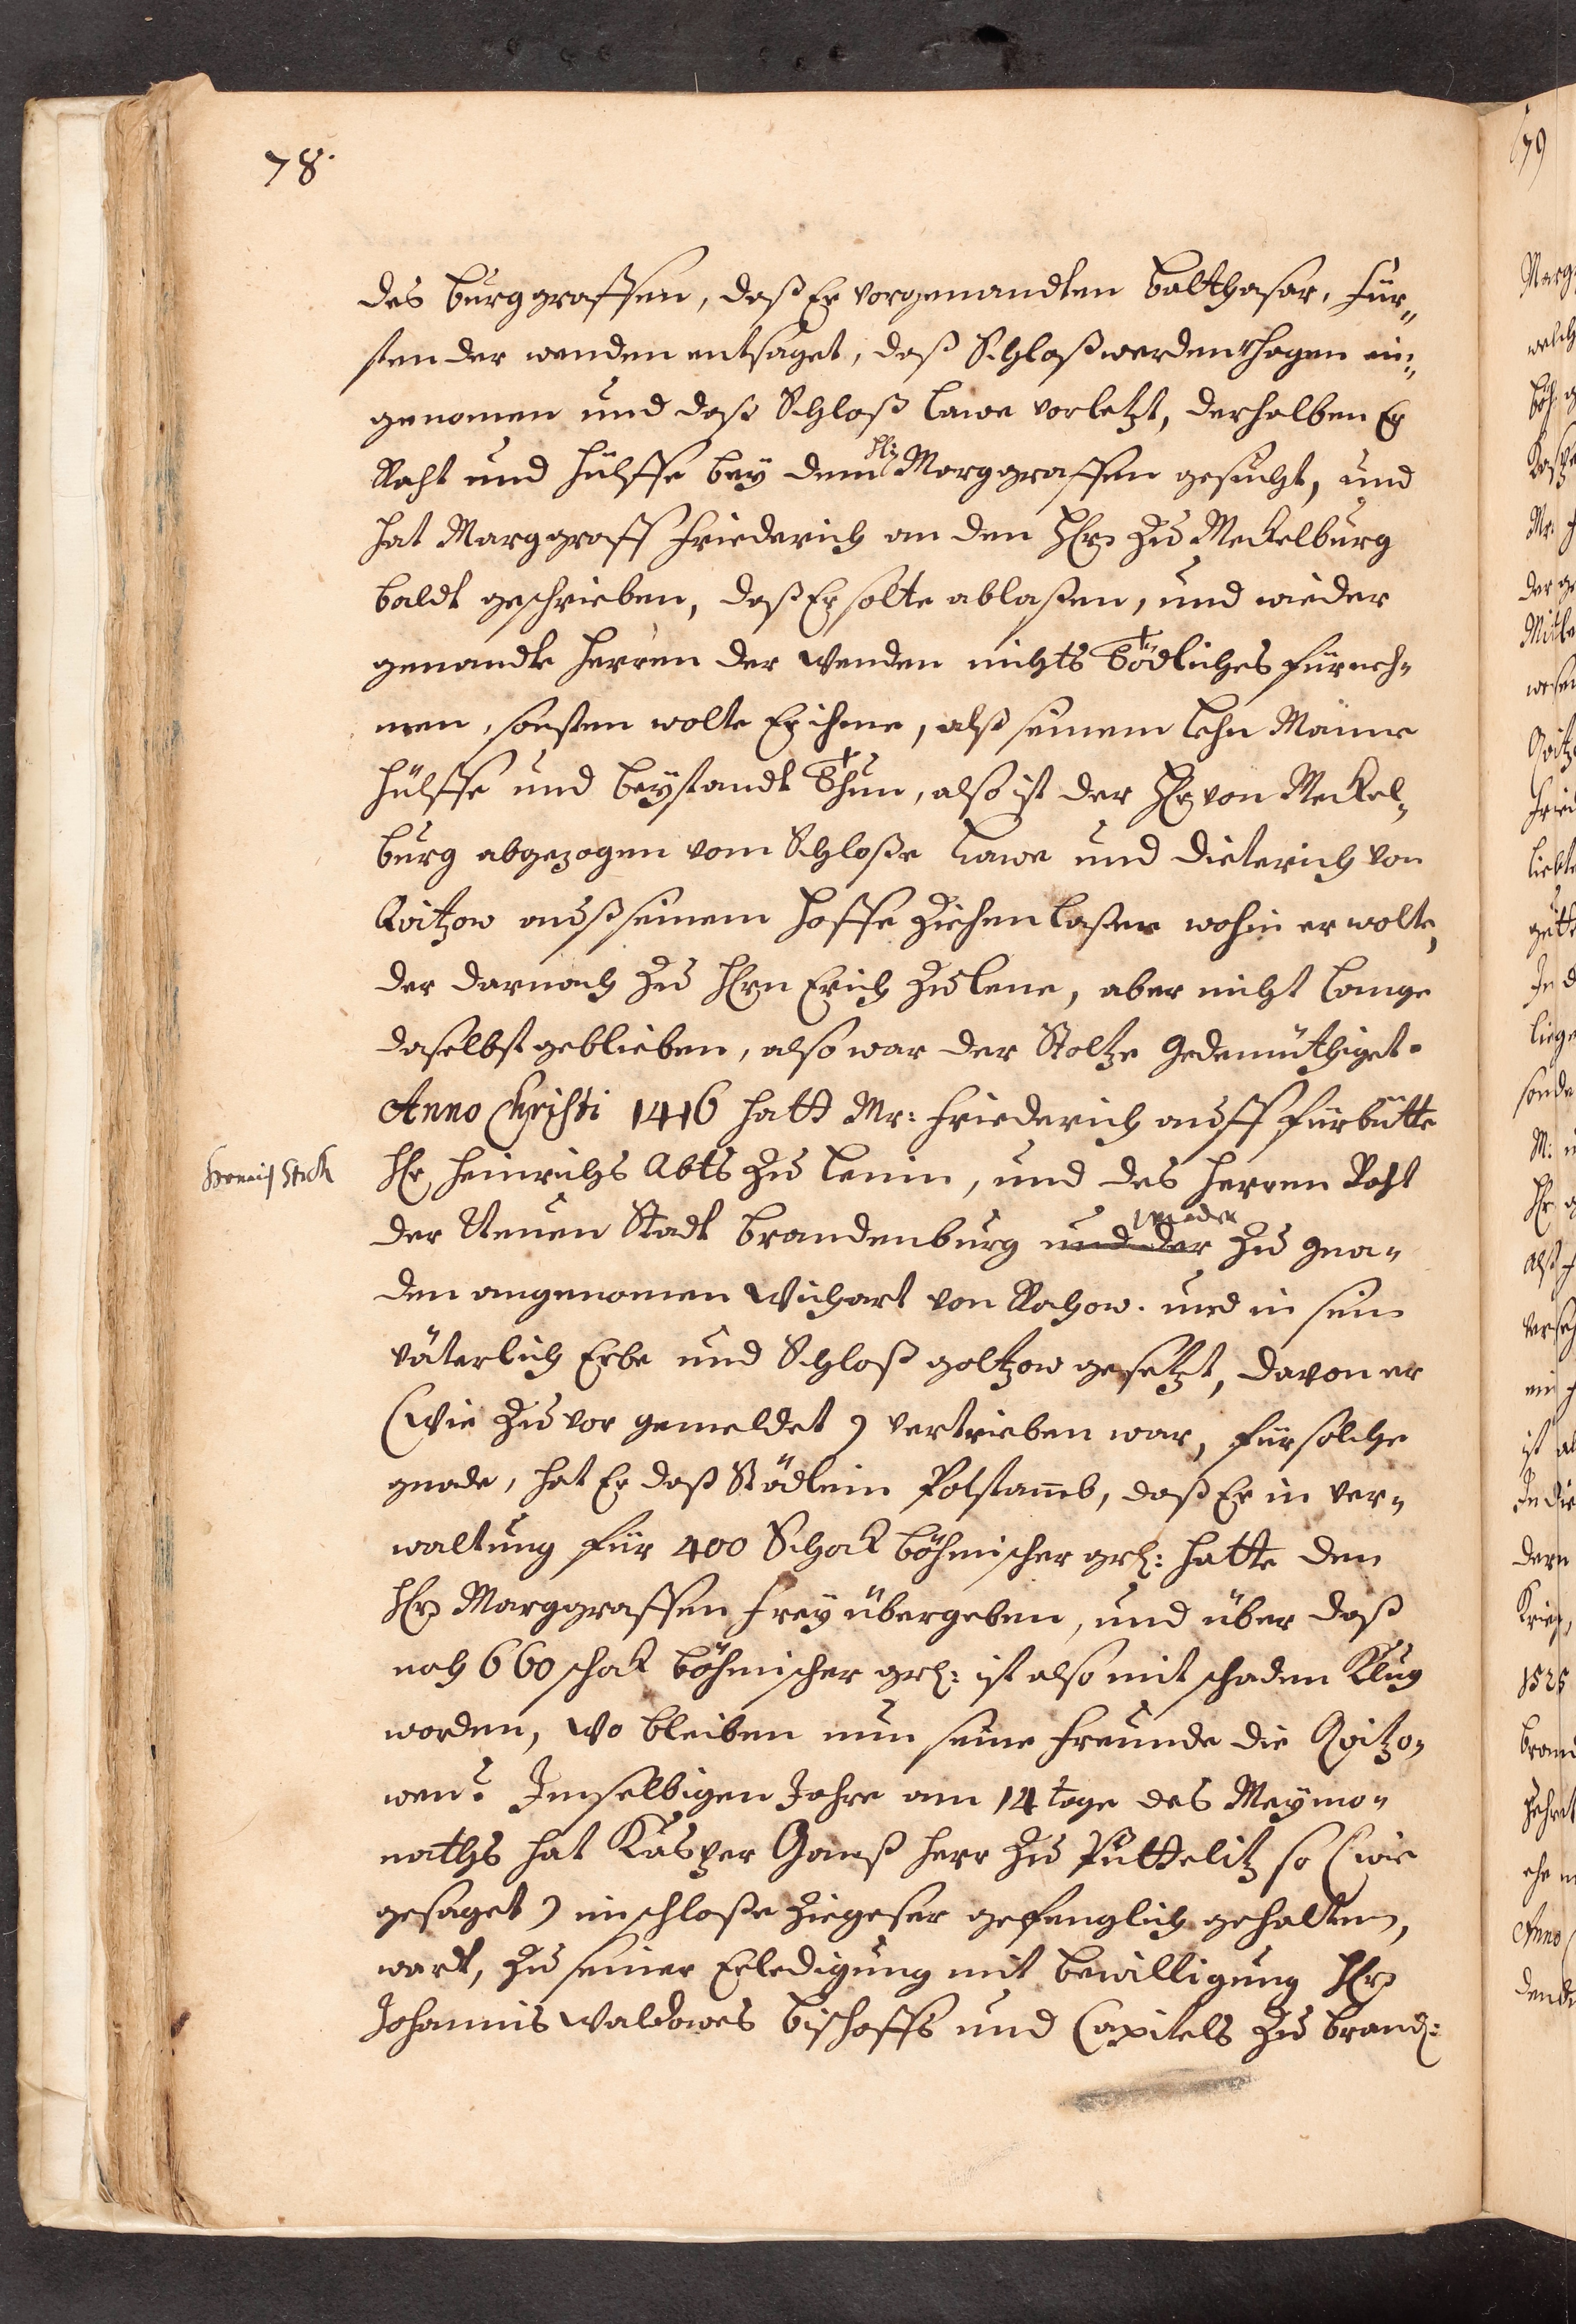 78.
des Burggraffen, daß Er vorgenandten Balthasar, Für„
sten der wenden entsaget, daß Schloß werdenhagen ein„
genomen und daß Schloß Lawe vorletzt, derhalben Er
Raht und Hülffe bey dem Marggraffen gesucht, und
hat Marggraff Friederich an den Hern zu Meckelburg
baldt geschrieben, daß Er solte ablaßen, und wieder
genandte Herren der Wenden nichts tödliches fürneh„
men, sonsten wolte Er ihme, alß seinem Lehn Manne
Hülffe und beystandt thun, also ist der Hr von Meckel„
burg abgezogen vom Schloße Lawe und Dieterich von
Qvitzow auß seinem Hoffe ziehen laßen wohin er wolte,
der darnach zu Hern Erich zu Lene, aber nicht lange
daselbst geblieben, also war der Stoltze gedemüthiget.
Anno Christi 1416 hatt Mr: Friederich auff fürbitte
Hr Heinrichs Abts zu Lenin, und des Herren Raht
Stich
der Neuen Stadt Brandenburg und der wieder zu gna„
den angenomen Wichart von Rahow. und in sein
väterlich Erbe und Schloß goltzow gesetzt, davon er
(Wie zuvor gemeldet) vertrieben war, für solche
gnade, hat Er daß Städlein Potstamb, daß Er in ver„
waltung für 400 Schock Böhmischer grl: hatte den
Hern Marggraffen frey übergeben, und über daß
noch 660 schok Böhmischer grl: ist also mit schaden Klug
worden, Wo bleiben nun seine Freunde die Qvitzo„
wen? Im selbigen Jahre am 14 tage des Meymo„
naths hat Kasper Ganß Herr zu Puttelitz so (wie
gesaget) im schloße Ziegeser gefenglich gehalten,
wardt, zu seiner Erledigung mit bewilligung Hern
Johannis Waldowes Bischoffs und Capitels zu Brand:
79